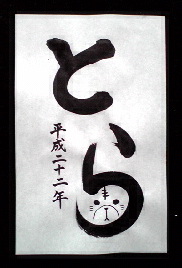 とら
平成二十二年